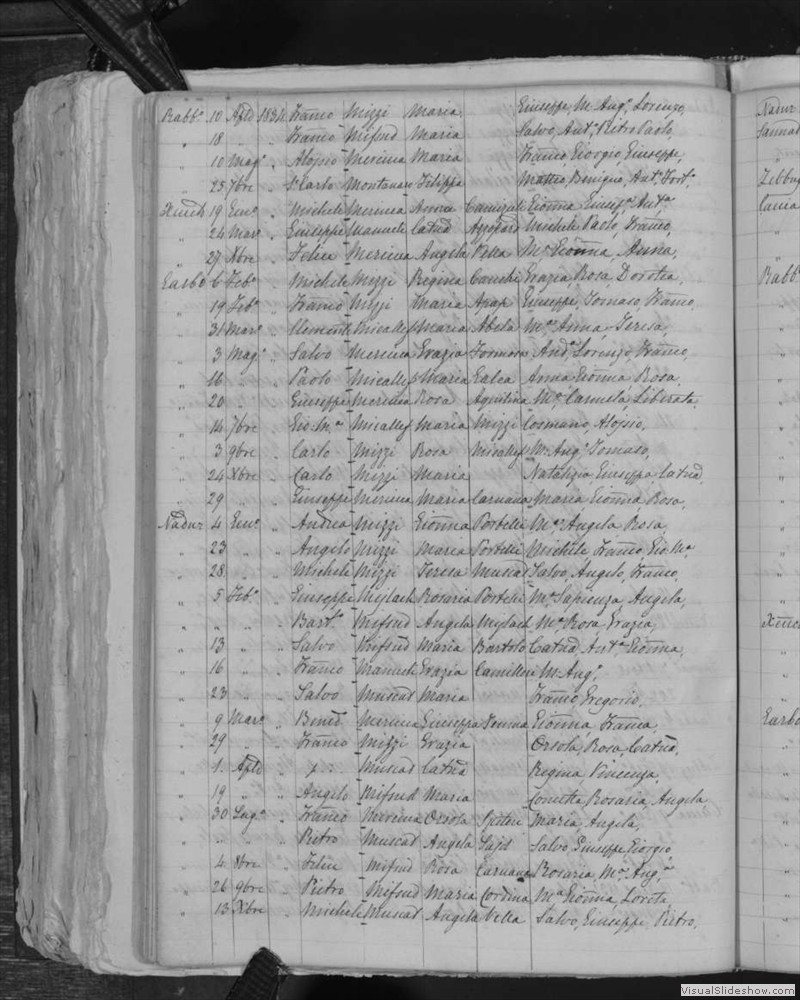 Rabbº 10 Aple 1834 Franco Mizzi Maria Giuseppe, M. Angº, Lorenzo,
" 18 " " Franco Mifsud Maria Salvo, Antº, Pietro Paolo,
" 10 Magº " Aloisio Mercieca Maria Franco, Giorgio, Giuseppe,
" 25 7bre " Carlo Montanaro Filippa Matteo, Benigna, Antº, Fort.
19 Genº " Michele Mercieca Anna Giovna, Giusepe, Antª
" 24 Marº " Giuseppe Manueli Catna Azzopard Michele Paolo, Franco,
" 27 Xbre " Felice Mercieca Angela Vella Mª Giovna, Anna,
6 Febº " Michele Mizzi Regina Cauchi Grazia, Rosa, Dorotea,
" 19 Febº " Franco Mizzi Maria Giuseppe, Tomaso, Franco,
" 31 Marº " Clemente Micallef Maria Abela Mª Anna, Teresa,
" 3 Magº " Salvo Mercieca Grazia Formosa Andª, Lorenzo, Franco,
" 16 " " Paolo Micallef Maria Galea Anna Giovna Rosa,
" 20 " " Giuseppe Mercieca Rosa Aquilina Mª, Carmela, Liberata,
" 14 7bre " Gio. Mª Micallef Maria Mizzi Cosmano, Aloisio,
" 3 9bre " Carlo Mizzi Rosa Micallef M. Angº, Tomaso,
" 24 Xbre " Carlo Mizzi Maria Natalizia, Giuseppa, Catna,
" 29 " " Giuseppe Mercieca Maria Caruana Maria Giovna, Rosa,
Nadur 4 Genº " Andrea Mizzi Giovna Portelli Mª, Angela, Rosa,
" 23 " " Angelo Mizzi Maria Portelli Michele, Franco, Gio Mª
" 28 " " Michele Mizzi Teresa Muscat Salvo, Angelo, Franco,
" 5 Febº " Giuseppe Mylach Rosaria Portelli Mª Sapienza, Angela,
" " " " Bartº Mifsud Angela Mylach Mª Rosa, Grazia,
" 13 " " Salvo Mifsud Maria Bartolo Catna, Antª, Giovna,
" 16 " " Franco Manueli Grazia Camilleri M. Angº,
" 23 " " Salvo Muscat Maria Franco, Gregorio,
" 9 Marº " Bened Mercieca Giuseppa Giovna Franca,
" 29 " " Franco Mizzi Grazia Orsola, Rosa, Catna,
" 1. Aple " Muscat Catna Regina Vincenza,
" 19 " " Angelo Mifsud Maria Concetta, Rosaria, Angela
" 30 Lugº " Franco Mercieca Orsola Maria, Angela,
" " " " Pietro Muscat Angela Said Salvo, Giuseppe, Giorgio,
" 4 " Felice Mifsud Rosa Caruana Rosaria, Mª, Angª
" 26 9bre " Pietro Mifsud Maria Cordina Mª Giovna, Loreta,
" 15 Xbre " Michele Muscat Angela Vella Salvo, Giuseppe, Pietro,
Nadur
Sannat
Rabbº
VisualSlideshow.com